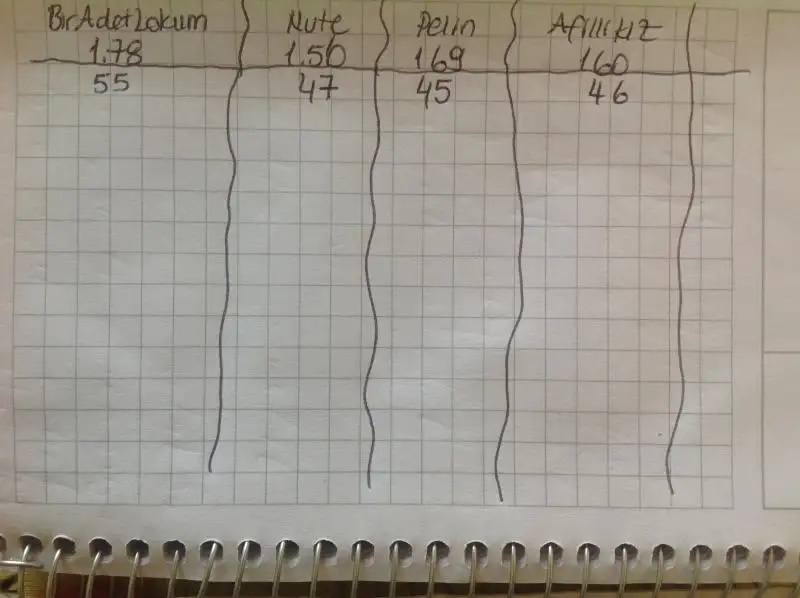 BirAdetLokum Nute Pelin Afillikız
1.78 1.50 169 160
55 47 45 46